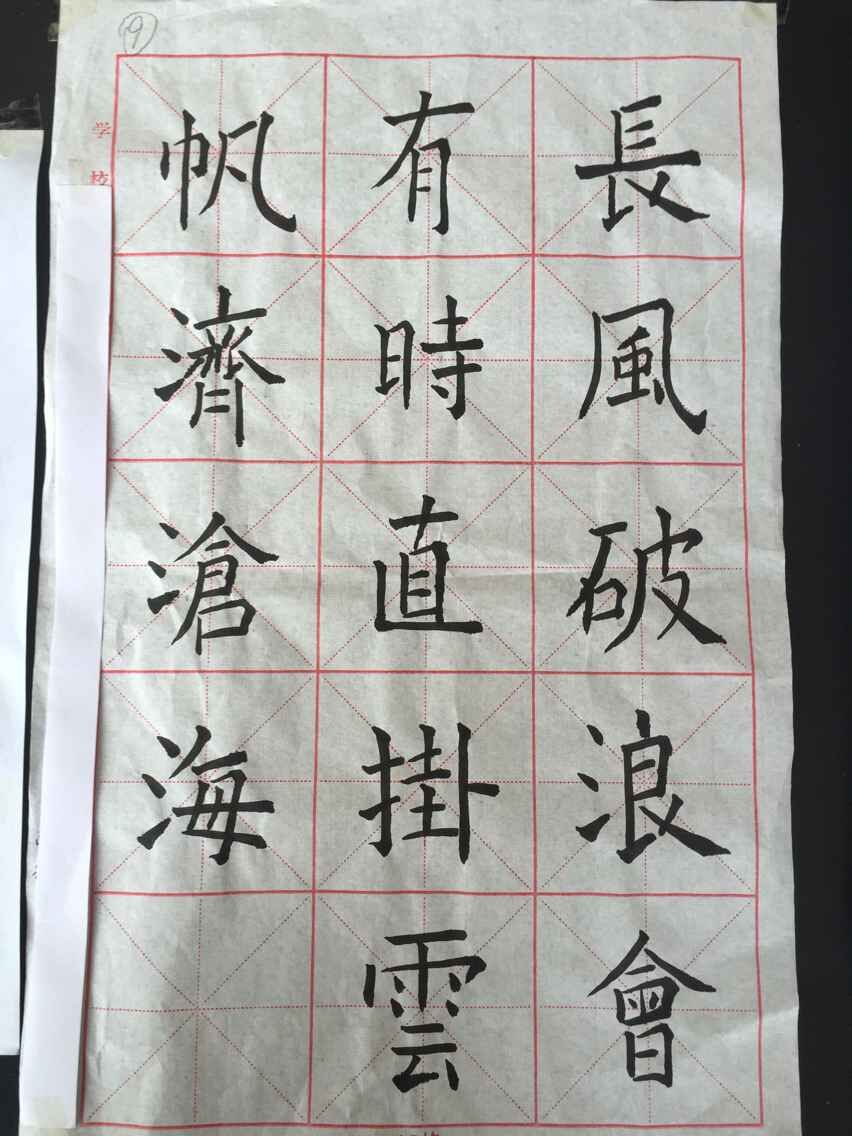 長風破浪會
有時直掛雲
帆濟滄海
学校
9